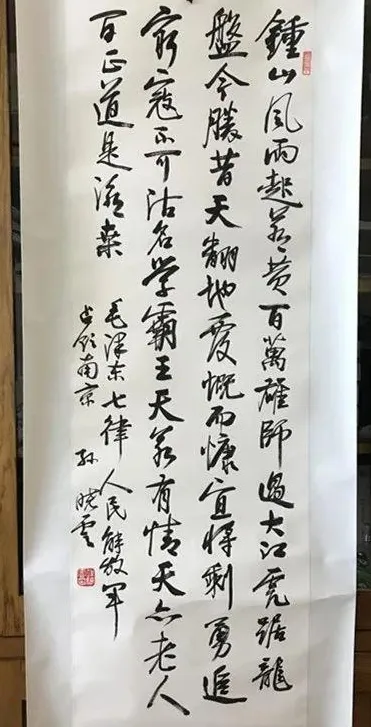 鍾山風雨起蒼黄百萬雄師過大江虎踞龍
盤今勝昔天翻地覆慨而慷宜將剩勇追
窮寇不可沽名学霸王天若有情天亦老人
间正道是滄桑
毛澤东七律 人民解放軍
占领南京 孙晓雲